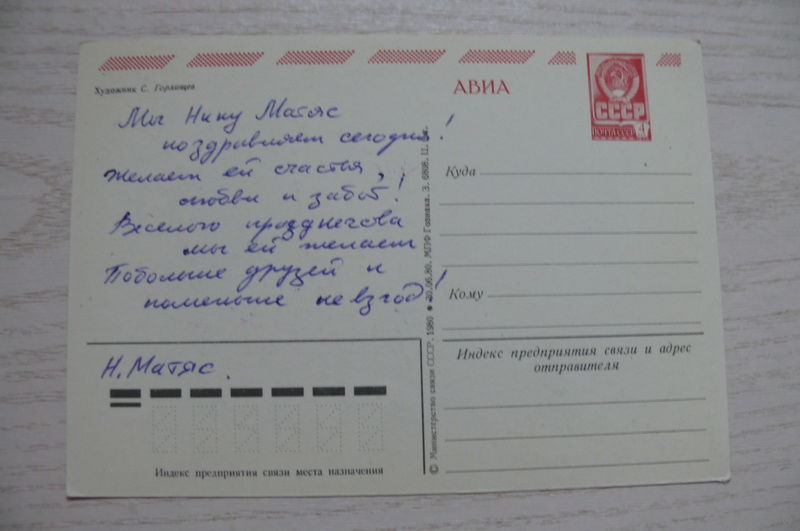 Художник С. Горлищев
Мы Нину Матяс
поздравляем сегодня!
Желаем ей счастья,
любви и забот!
Веселого празднества
мы ей желаем
Побольше друзей и
поменьше невзгод!
Н. Матяс.
Индекс предприятия связи места назначения
© Министерство связи СССР, 1980 30.06.80. МПФ Гознака. З. 6808. Ц.
АВИА
СССР
ПОЧТА СССР
4
Куда
Кому
Индекс предприятия связи и адрес
отправителя